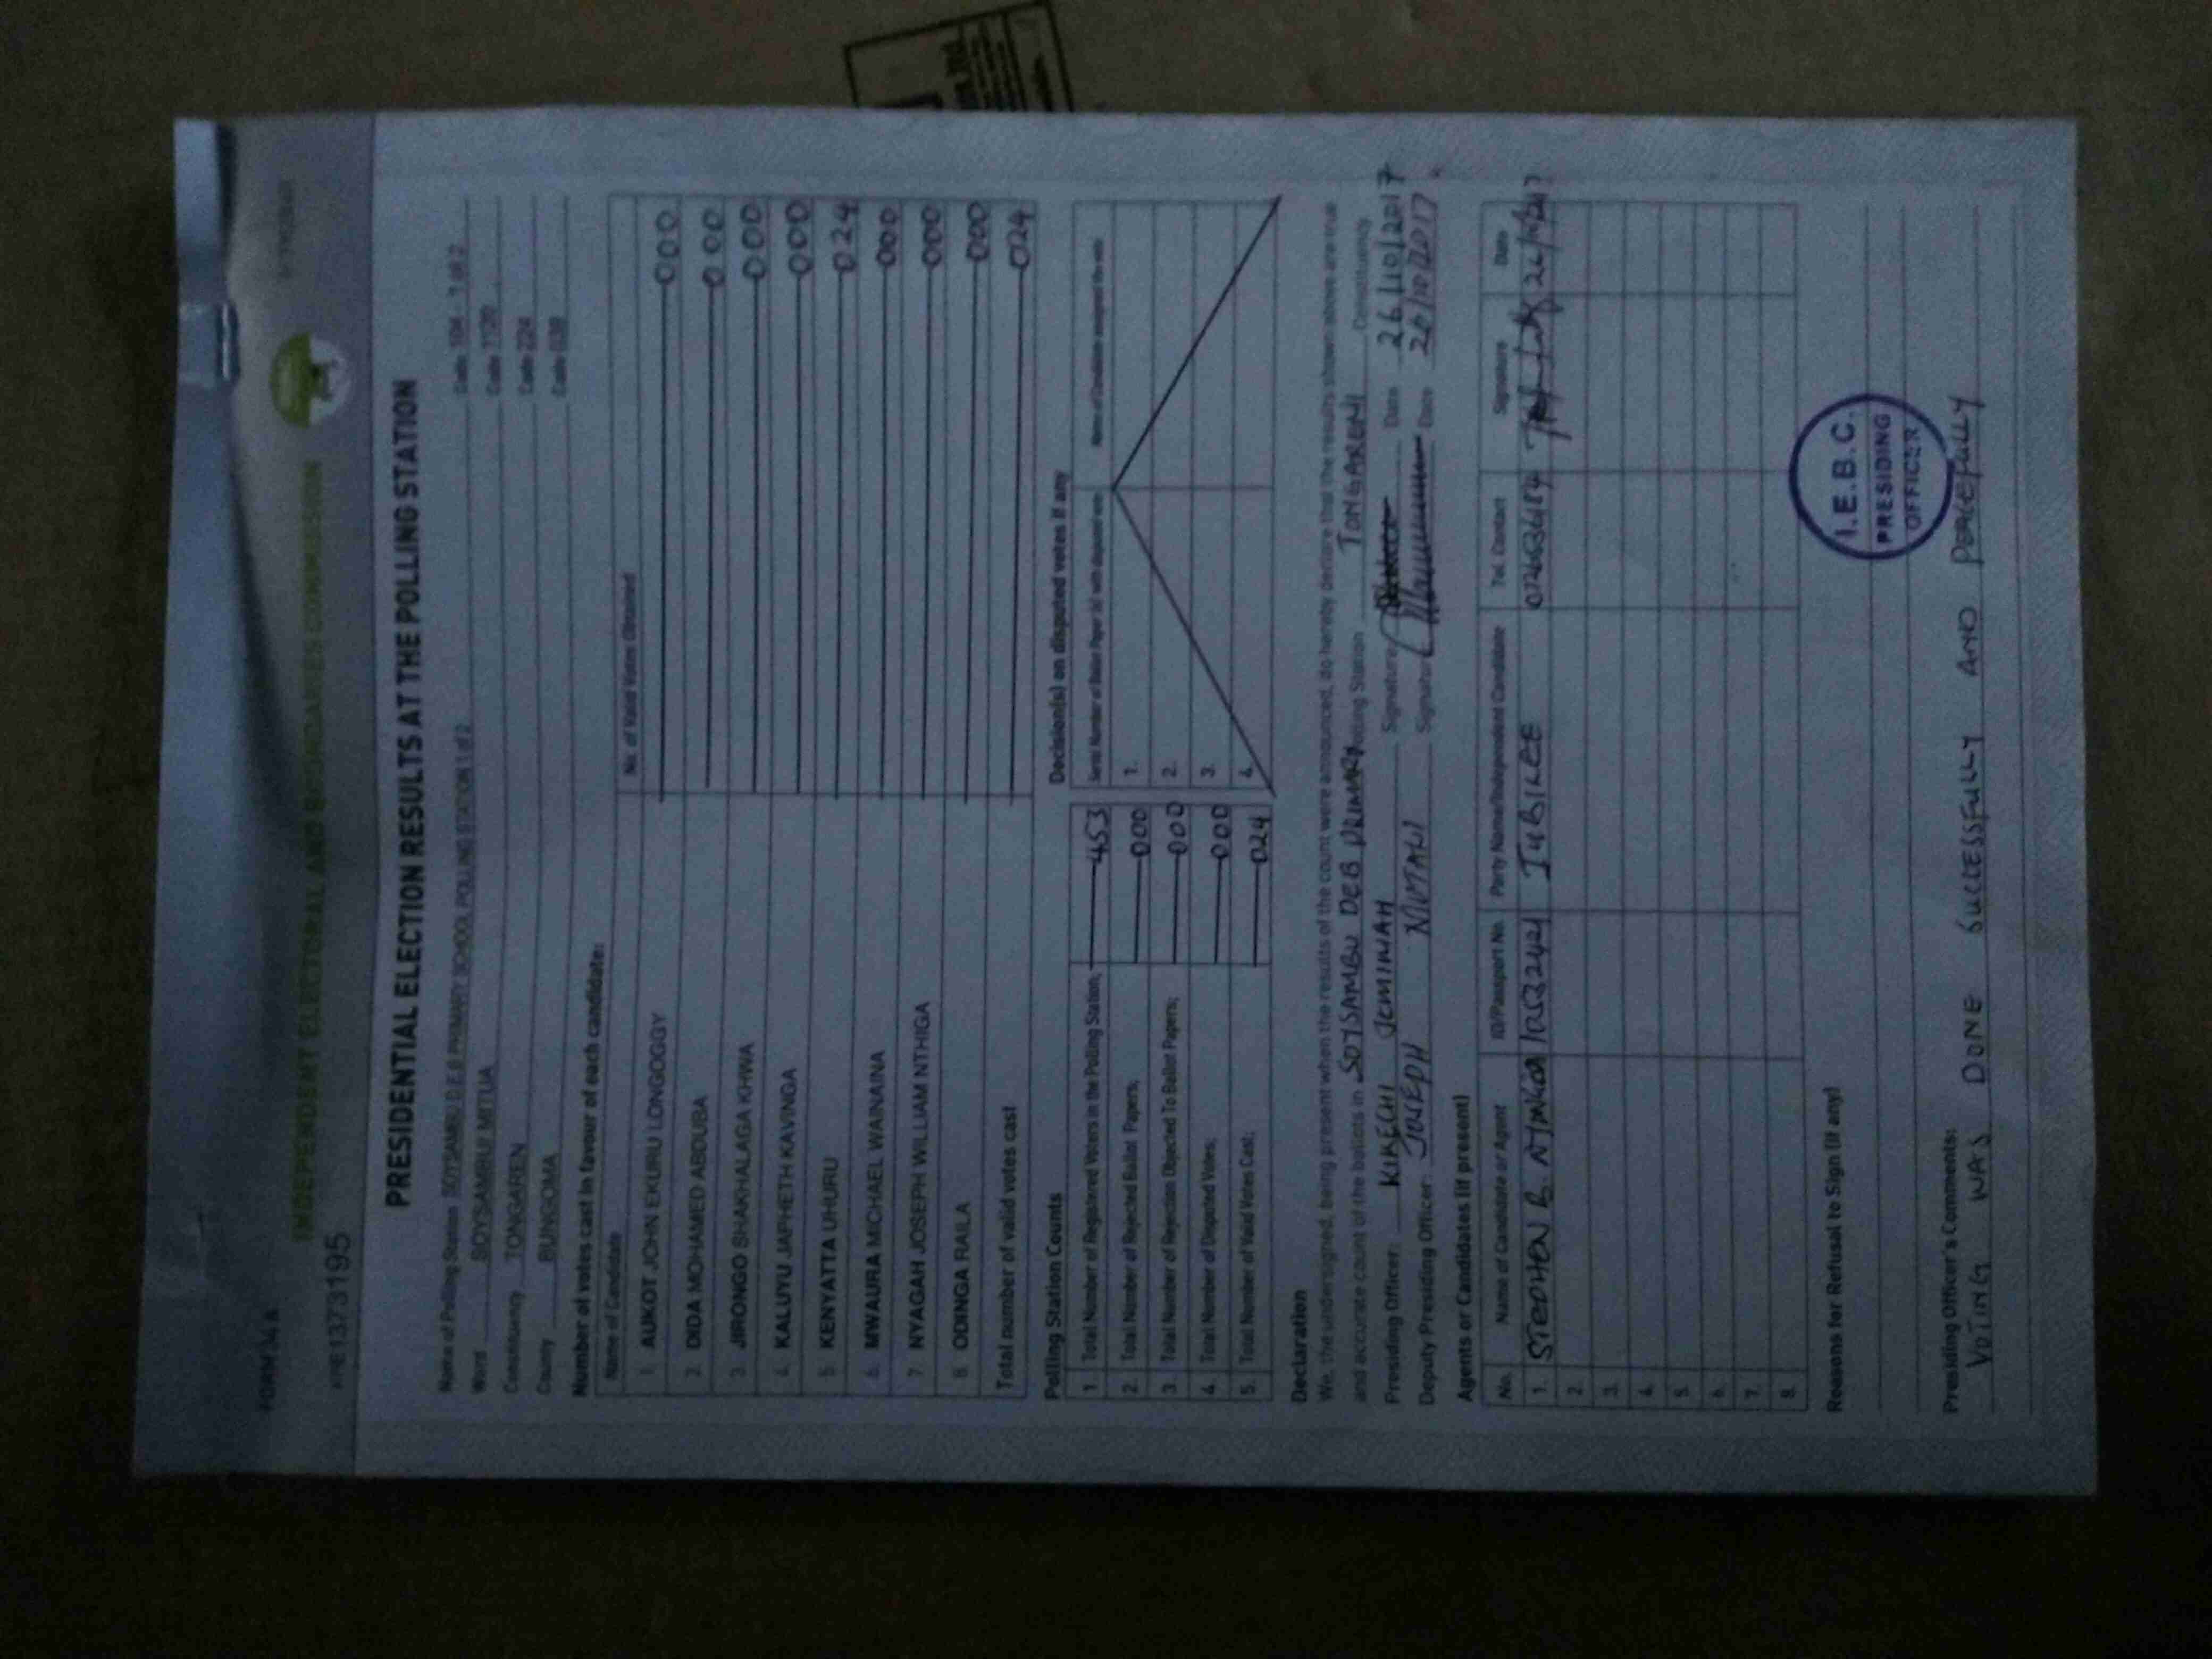 FORM 34 A
INDEPENDENT ELECTORAL AND BOUNDARIES COMMISSION
PRESIDENTIAL ELECTION RESULTS AT THE POLLING STATION
Name of Polling Station SOYSAMBU D.E.B PRIMARY SCHOOL POLLING STATION 1 of 2 Code 1 of 2
Ward SOYSAMBU/ MITUA Code
Constituency TONGAREN Code
County BUNGOMA Code
Number of votes cast in favour of each candidate:
Name of Candidate No. of Valid Votes Obtained
1. AUKOT JOHN EKURU LONGOGGY 000
2. DIDA MOHAMED ABDUBA 000
3. JIRONGO SHAKHALAGA KHWA 000
4. KALUYU JAPHETH KAVINGA 000
5. KENYATTA UHURU 024
6. MWAURA MICHAEL WAINAINA 000
7. NYAGAH JOSEPH WILLIAM NTHIGA 000
8. ODINGA RAILA 000
Total number of valid votes cast 024
Polling Station Counts
1. Total Number of Registered Voters in the Polling Station; 453
2. Total Number of Rejected Ballot Papers; 000
3. Total Number of Rejection Objected To Ballot Papers; 000
4. Total Number of Disputed Votes; 000
5. Total Number of Valid Votes Cast; 024
Decision(s) on disputed votes if any
1.
2.
3.
4.
Declaration
We, the undersigned, being present when the results of the count were announced, do hereby declare that the results shown above are true
and accurate count of the ballots in SOYSAMBU DEB PRIMARY Polling Station TONGAREN Constituency
Presiding Officer: JEMIMAH Signature Date 26/10/2017
Deputy Presiding Officer: JOSEPH Signature Date 26/10/2017
Agents or Candidates (if present)
No. Name of Candidate or Agent ID/Passport No. Party Name/Independent Candidate Tel. Contact Signature Date
1. STEPHEN B. JUBILEE
2.
3.
4.
5.
6.
7.
8.
I.E.B.C.
PRESIDING
OFFICER
Reasons for Refusal to Sign (if any)
Presiding Officer's Comments:
VOTING WAS DONE SUCCESSFULLY AND PEACEFULLY